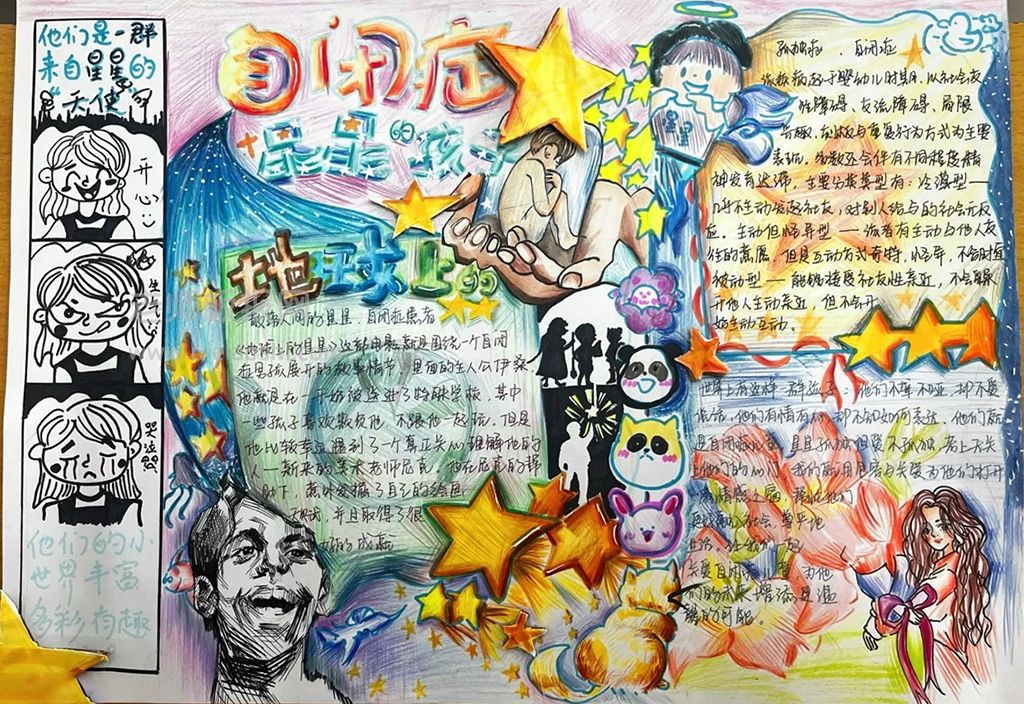 他们是一群
来自星星的
“天使”
开心
生气
哭泣
他们的小
世界丰富
多彩有趣
自闭症
星星的孩子
地球上的
散落人间的星星,自闭症患者
《地球上的星星》这部电影就是围绕一个自闭
症男孩展开的故事情节,里面的主人公伊桑
他就是在一开始被送进了特殊学校,其中
一些孩子喜欢欺负他不跟他一起玩,但是
他比较幸运遇到了一个真正关心理解他的
人—新来的美术老师尼克,他在尼克的帮
助下,意外发掘了自己的绘画
天赋,并且取得了很
好的成绩
孤独症、自闭症
该疾病起于婴幼儿时期,以社会交
往障碍、交流障碍、局限
兴趣、刻板与重复行为方式为主要
表现,多数还会伴有不同程度精
神发育迟滞,主要分类类型有:冷漠型—
几乎不主动发起社交,对别人给与的社会无反
应。主动但怪异型—患者有主动与他人交
往的意愿,但是互动方式奇特,怪异,不合时宜
被动型—能够接受社交性亲近,不会躲
开他人主动亲近,但不会开
始主动互动。
世界上有这样一群孩子:他们不聋不哑,却不爱
说话,他们有情有 却不知如何表达,他们就
是自闭症儿童,星星孤独但爱不孤独,老天关
上他们的心门,我们就用爱与关爱为他们打开
一扇情感之窗,
融入社会,尊平地
生活,让我们一起
关爱自闭症儿童,为他
们的未来增添更温
暖的可能。